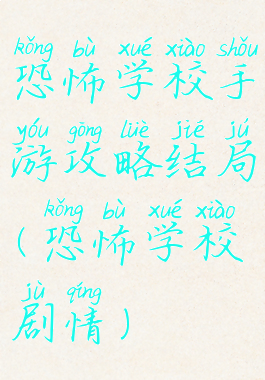 kǒng bù xué xiào shǒu
恐怖学校手
yóu gōng lüè jié jú
游攻略结局
kǒng bù xué xiào
(恐怖学校
jù qíng
剧情)